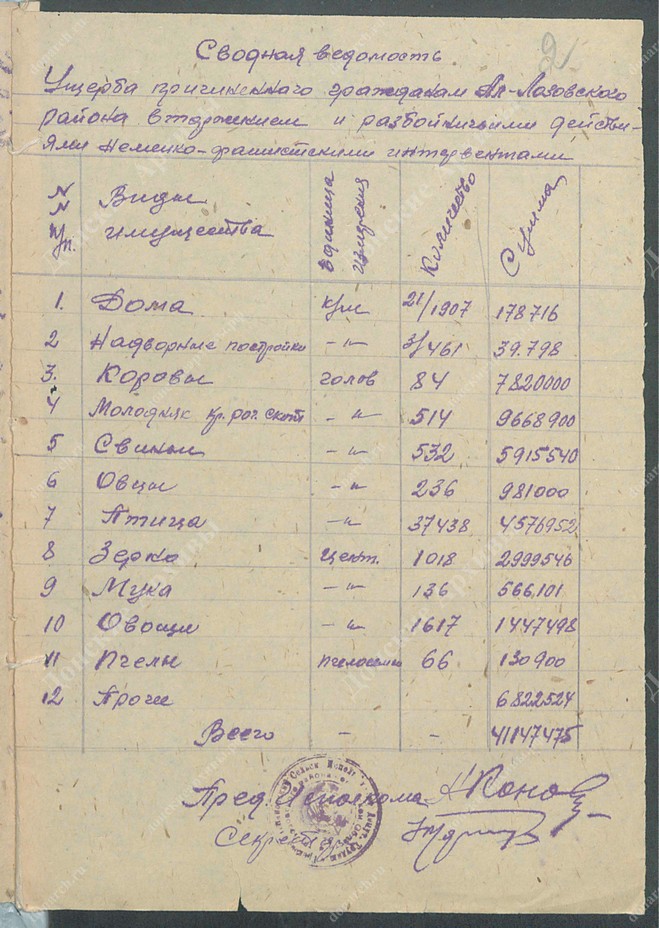 2
Сводная ведомость
Ущерба причиненного гражданам Ал-Лозовского
района вторжением и разбойничьими действи-
ями немецко-фашистскими интервентами
№№ п/п. Виды имущества Единица измерения Количество Сумма
1. Дома к/м 21/1907 178716
2 Надворные постройки -"- 3/461 39.798
3. Коровы голов 84 7820000
4 Молодняк кр. рог. скота -"- 514 9668900
5 Свиньи -"- 532 5915540
6 Овцы -"- 236 981000
7 Птица -"- 37438 4576952
8 Зерно цент. 1018 2999546
9 Мука -"- 136 566101
10 Овощи -"- 1617 1447498
11 Пчелы пчелосемьи 66 130900
12 Прочие 6.822524
Всего - - 41147475
Пред. Исполкома
Секретарь